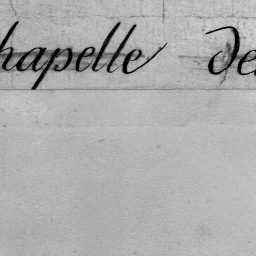 hapelle des